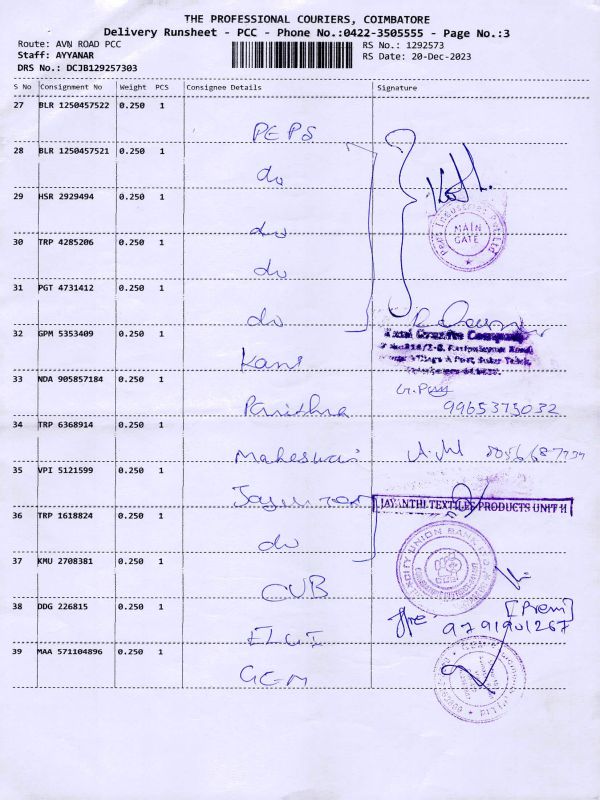 THE PROFESSIONAL COURIERS, COIMBATORE
Delivery Runsheet - PCC - Phone No.:0422-3505555 - Page No.:3
Route: AVN ROAD PCC
RS No.: 1292573
Staff: AYYANAR
RS Date: 20-Dec-2023
DRS No.: DCJB129257303
S No Consignment No Weight PCS Consignee Details Signature
27 BLR 1250457522 0.250 1
PEPS
28 BLR 1250457521 0.250 1
do
29 HSR 2929494 0.250 1
MAIN
GATE
do
30 TRP 4285206 0.250 1
do
31 PGT 4731412 0.250 1
do
32 GPM 5353409 0.250 1
Kani
33 NDA 905857184 0.250 1
9965375032
34 TRP 6368914 0.250 1
Maheswari
35 VPI 5121599 0.250 1
JAYANTHI TEXTILES PRODUCTS UNIT II
36 TRP 1618824 0.250 1
do
37 KMU 2708381 0.250 1
CITY UNION BANK
CUB
38 DDG 226815 0.250 1
[Prem]
9791901267
39 MAA 571104896 0.250 1
GEM